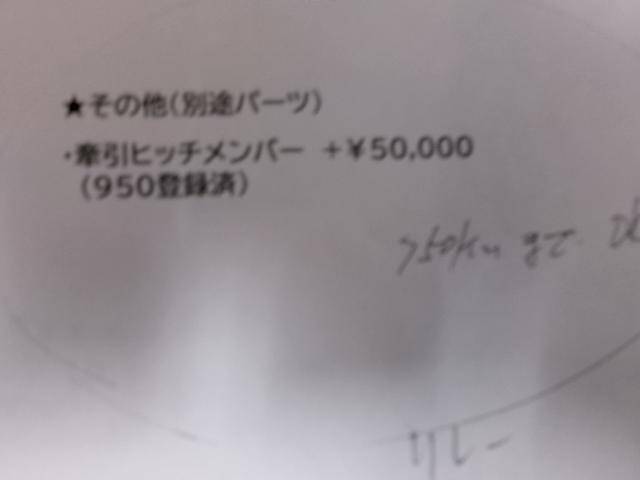 ★その他(別途パーツ)
・牽引ヒッチメンバー +¥50,000
(950登録済)
まで
リレー